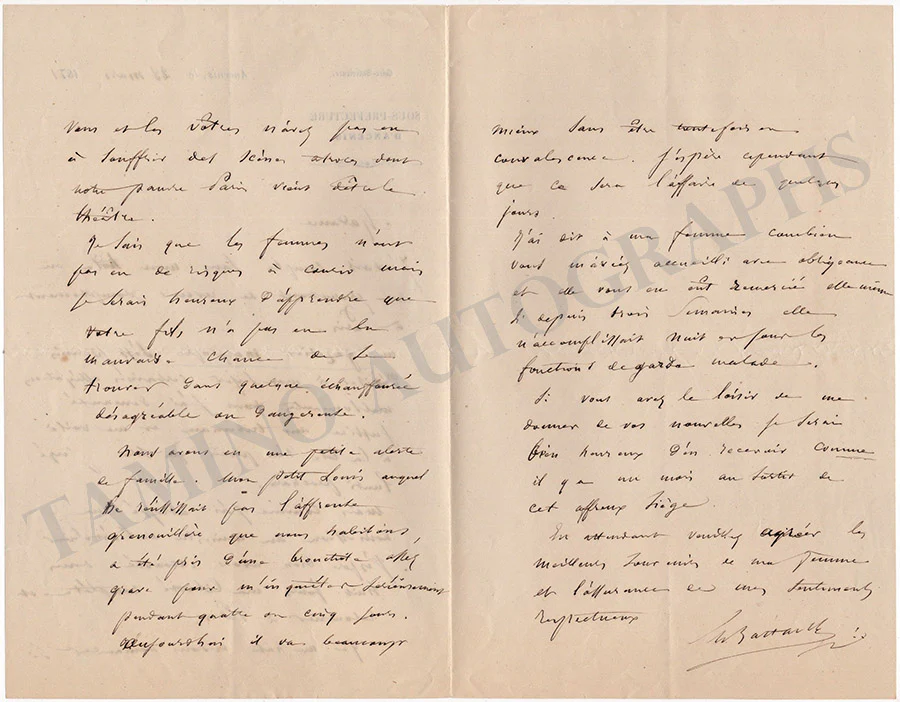 vous et les vôtres n'avez pas eu
à souffrir des scènes atroces dont
notre pauvre Paris vient d'être le
théâtre.
Je sais que les femmes n'ont
pas eu de risques à courir mais
je serais heureux d'apprendre que
votre fils n'a pas eu la
mauvaise chance de se
trouver dans quelque échauffourée
désagréable ou dangereuse.
Nous avons eu une petite alerte
de famille. Mon petit Louis auquel
ne réussissait pas l'affreuse
grenouillère que nous habitons
a été pris d'une bronchite assez
grave pour m'inquiéter sérieusement
pendant quatre ou cinq jours.
Aujourdhui il va beaucoup
mieux sans être toutefois en
convalescence. J'espère cependant
que ce sera l'affaire de quelques
jours.
J'ai dit à ma femme combien
vous m'aviez accueilli avec obligeance
et elle vous en eût remercié elle même
si depuis trois semaines elle
n'accomplissait nuit et jour les
fonctions de garde malade.
Si vous avez le loisir de me
donner de vos nouvelles je serai
bien heureux d'en recevoir comme
il y a un mois au sortir de
cet affreux siège.
En attendant veuillez agréer les
meilleurs souvenirs de ma femme
et l'assurance de mes sentiments
respectueux
SOUS-PRÉFECTURE
D'ANCENIS
TAMINO AUTOGRAPHS